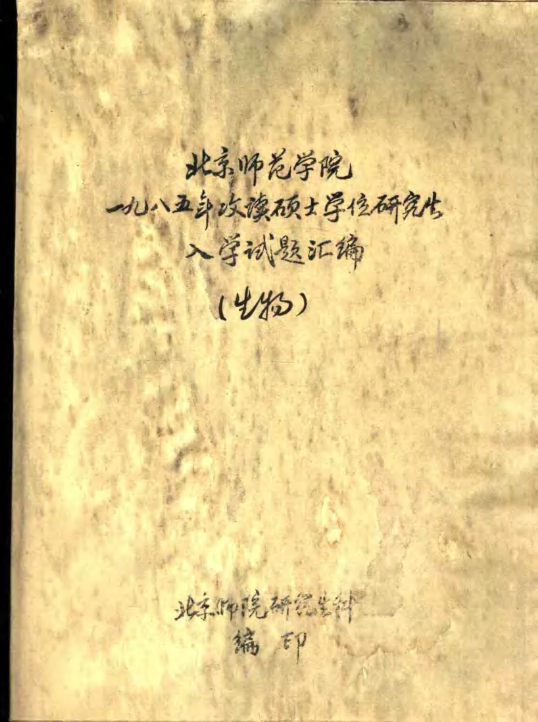 北京师范学院
一九八五年攻读硕士学位研究生
入学试题汇编
(生物)
北京师院研究生科
编印